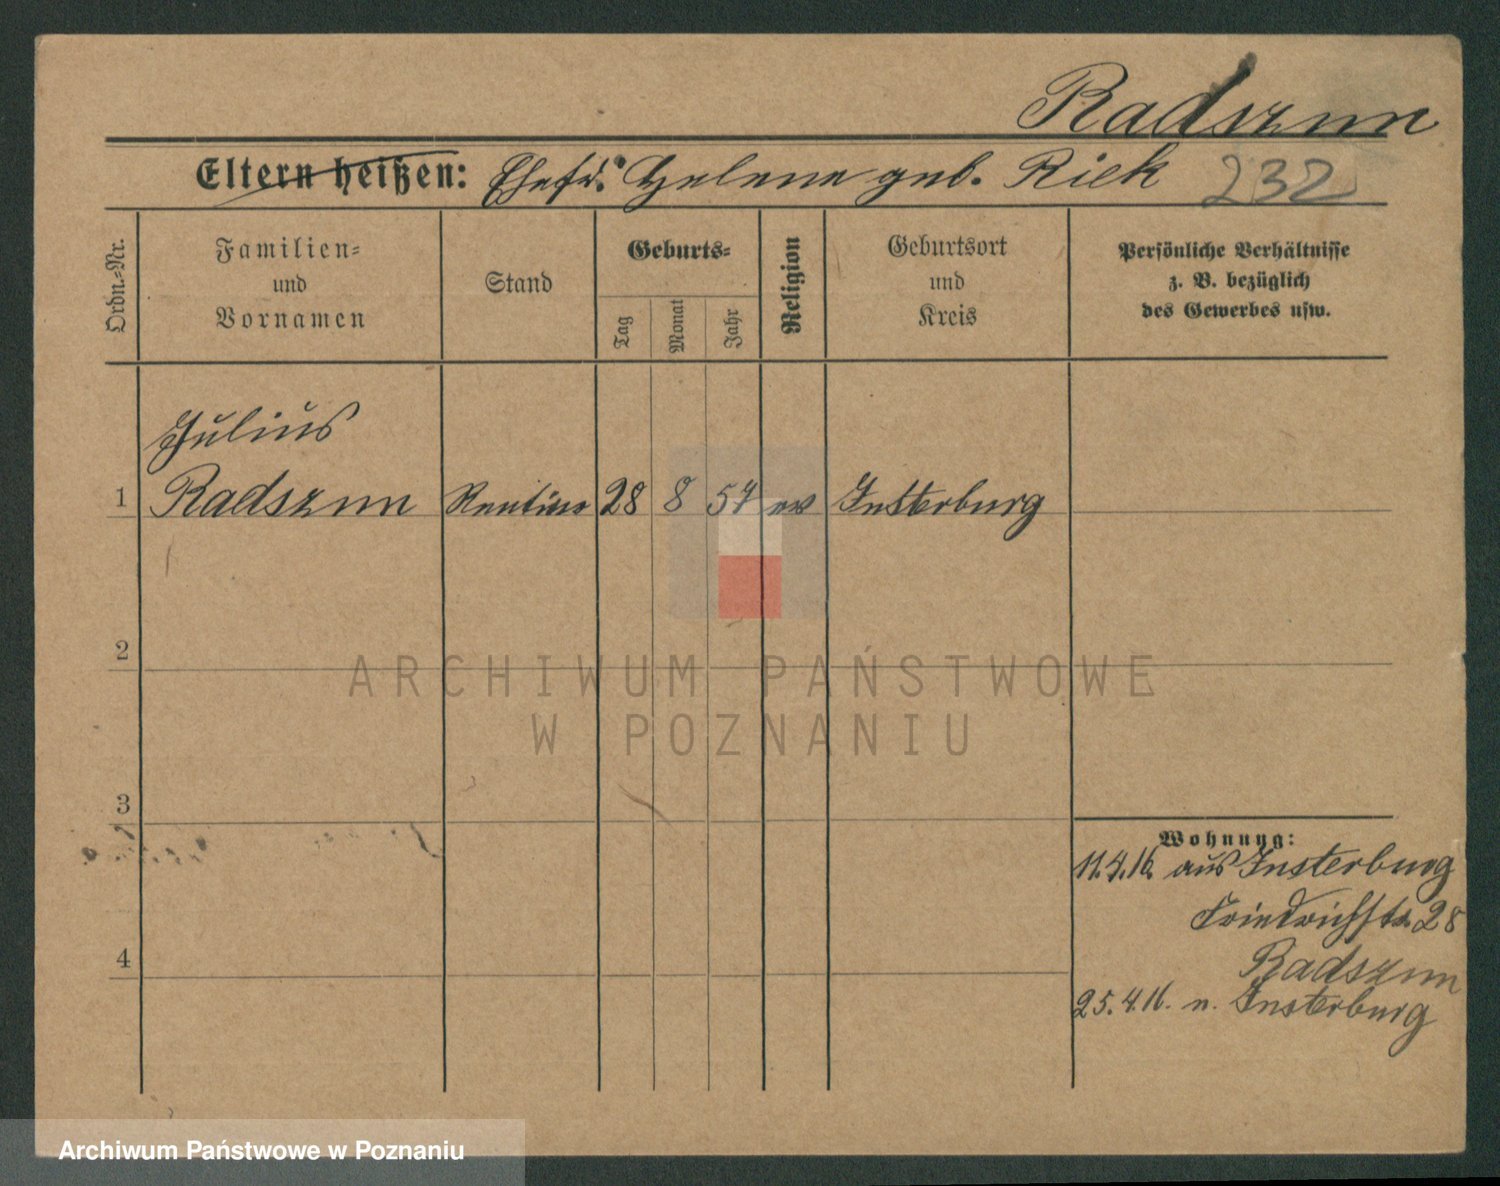 Radszun
Eltern heißen: Ehefr. Helene geb. Riek 232
Ordn.-Nr.
Familien-
und
Vornamen
Stand
Geburts-
Tag
Monat
Jahr
Religion
Geburtsort
und
Kreis
Persönliche Verhältnisse
z. B. bezüglich
des Gewerbes usw.
Julius
1 Radszun Rentier 28 8 57 ev Insterburg
2
3
Wohnung:
11.4.16. aus Insterburg
Friedrichstr. 28
4
Radszun
25.4.16. n. Insterburg
ARCHIWUM PAŃSTWOWE
W POZNANIU
Archiwum Państwowe w Poznaniu